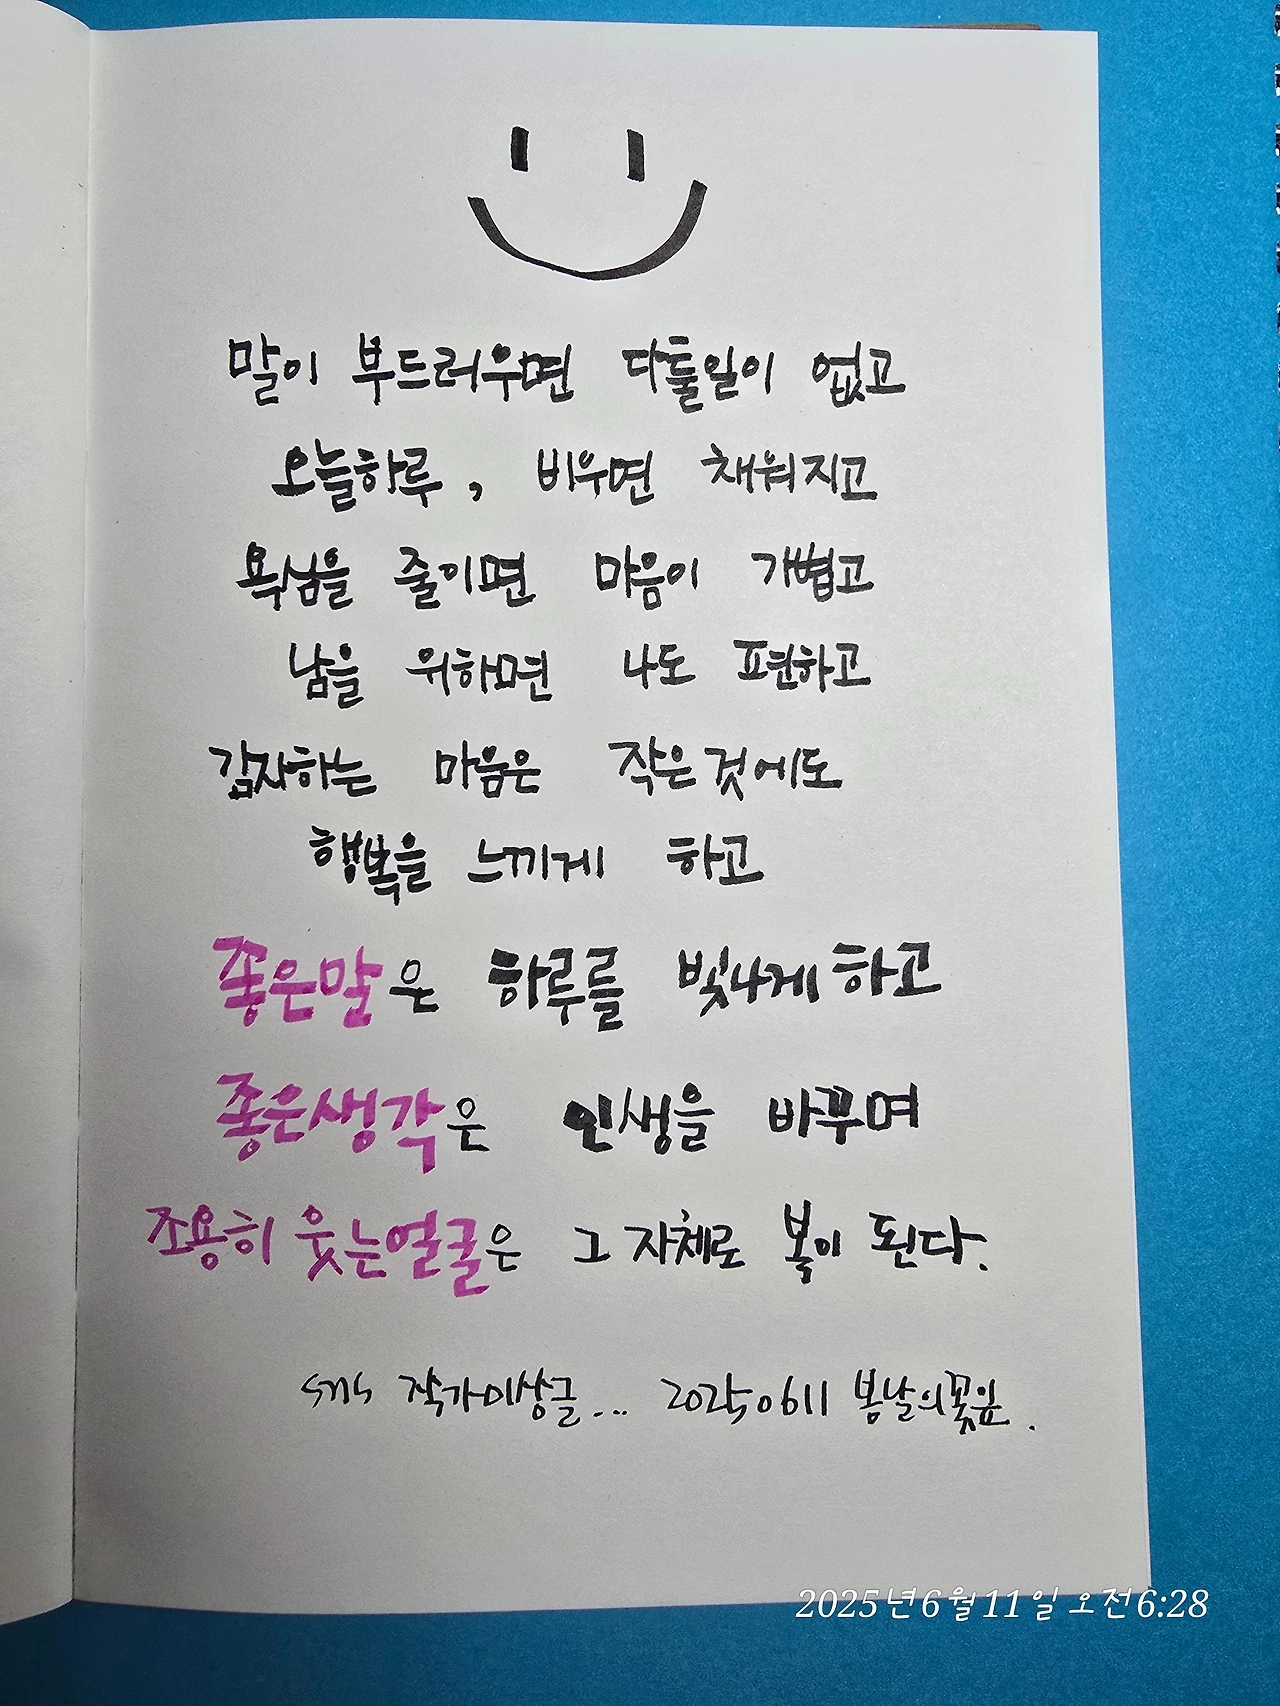 말이 부드러우면 다툴일이 없고
오늘하루, 비우면 채워지고
욕심을 줄이면 마음이 가볍고
남을 위하면 나도 편하고
감사하는 마음은 작은것에도
행복을 느끼게 하고
좋은말은 하루를 빛나게하고
좋은생각은 인생을 바꾸며
조용히 웃는얼굴은 그 자체로 복이 된다.
sns 작가미상글... 20250611 봄날의꽃잎.
2025년6월11일 오전6:28